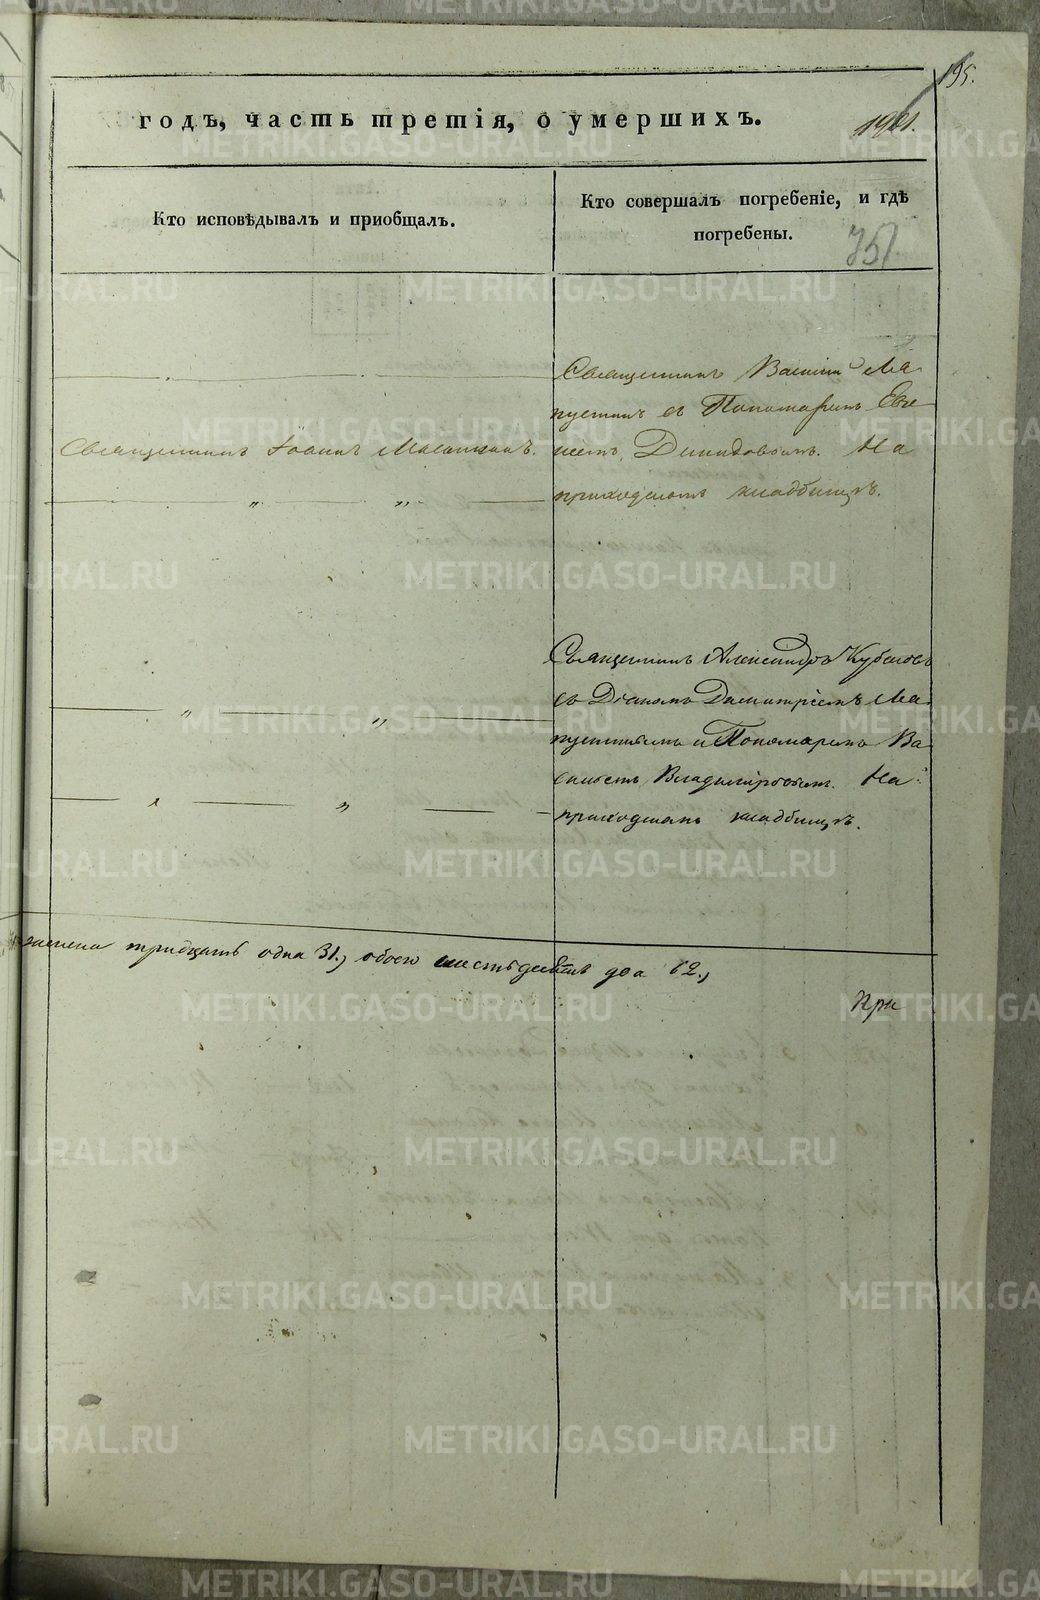 195.
годъ, часть третія, о умершихъ.
Кто исповѣдывалъ и пріобщалъ.
Кто совершалъ погребеніе, и гдѣ
погребены.
751.
Священникъ Василій Ла-
пустинъ съ Пономаремъ Евге-
ніемъ Демидовымъ. На
приходскомъ кладбищѣ.
Священникъ Іоаннъ
Священникъ Александръ
съ Діакономъ Димитріемъ Ла-
пустинымъ и Пономаремъ Ва-
силіемъ Владиміровымъ. На
приходскомъ кладбищѣ.
тридцать одна 31, обоего шестьдесятъ два 62,
При
METRIKI.GASO-URAL.RU